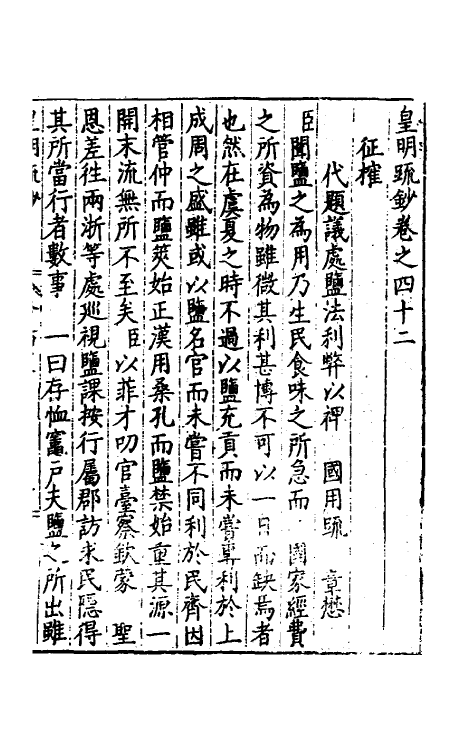 皇明疏鈔卷之四十二
征榷
代題議處鹽法利弊以裨　國用疏　章懋
臣聞鹽之為用乃生民食味之所急而　國家經費
之所資為物雖微其利甚博不可以一日而缺焉者
也然在虞夏之時不過以鹽充貢而未嘗專利於上
成周之盛雖或以鹽名官而未嘗不同利於民齊因
相管仲而鹽筴始正漢用桑孔而鹽禁始重其源一
開末流無所不至矣臣以菲才叨官臺察欽蒙　聖
恩差往兩浙等處巡視鹽課按行屬郡訪求民隱得
其所當行者數事　一曰存恤竈戶夫鹽之所出雖